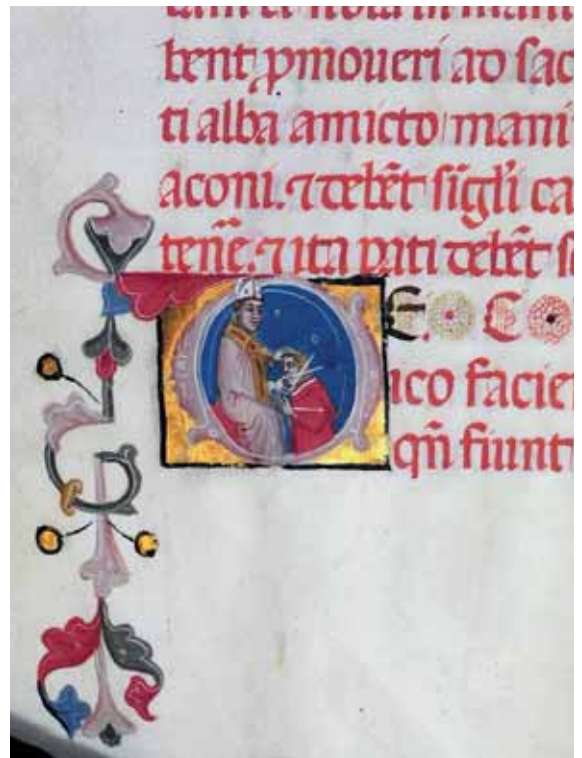 bent p̱moueri ad sac
ti alba amicto mani
aconi. ⁊ debēt sīgĺi ca
tenē. ⁊ ita pati debēt s
E O C O
ico facie
qn̄ fiunt